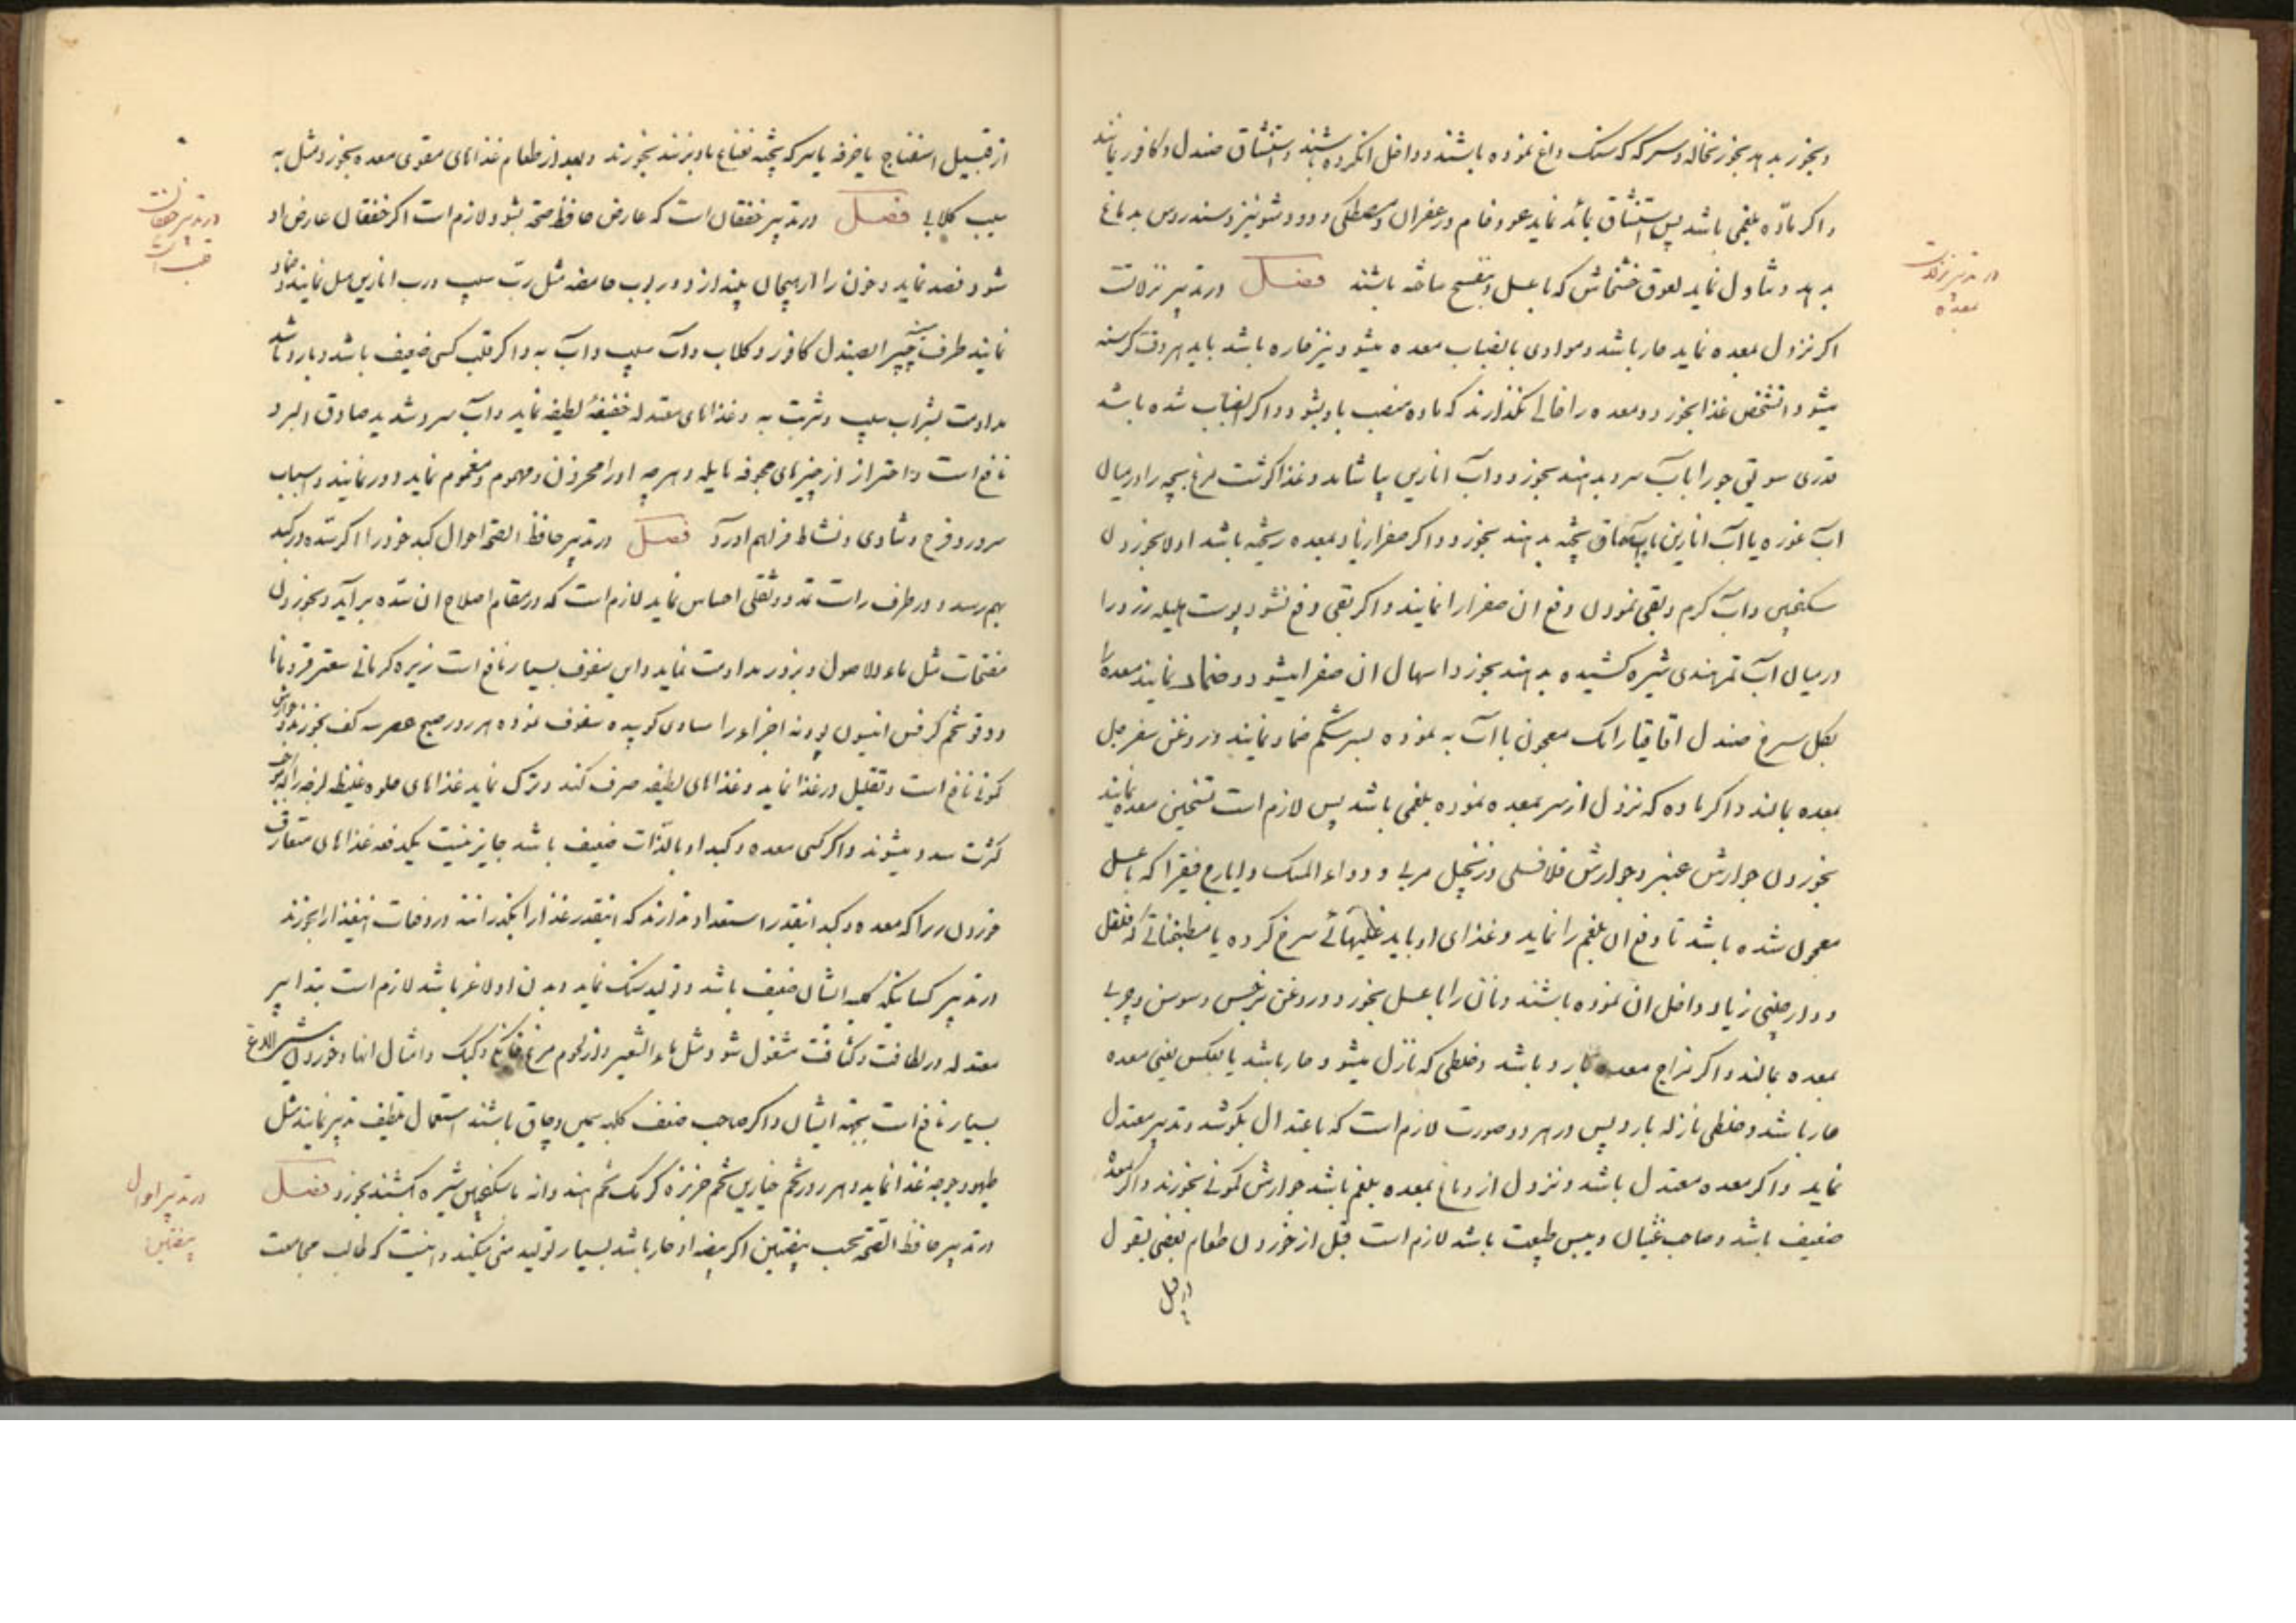 و بخور بدهد بخور نخاله و سرکه که سنک داغ نموده باشند و داخل انکرده باشند و استنشاق صندل و کافور نمایند
و اکر ماده بلغمی باشد پس استنشاق نماید عود خام و زعفران و مصطکی و دود شونیز و سندروس بدماغ
بدهد و تناول نماید لعوق خشخاش که با عسل و ساخته باشند فصل در تدبیر نزلات
اکر نزول بمعده نماید حار باشد و موادی بانصباب معده میشود نیز حاره باشد باید هر وقت کرسنه
میشود انشخص غذا بخورد و معده را خالی نکذارند که ماده منصب باو بشود و اکر انصباب شده باشد
قدری سویق جو را با آب سرد بدهند بخورد و آب انارین بیاشامد و غذا کوشت مرغ بچه را در میان
آب غوره یا آب انارین یا آب سماق پخته بدهند بخورد و اکر صفرا زیاد بمعده ریخته باشد اولا بخوردن
سکنجبین و آب کرم و بقی نمودن دفع ان صفرا را نمایند و اکر بقی دفع نشود پوست هلیله زرد را
در میان آب تمرهندی شیره کشیده بدهند بخورد اسهال ان صفرا میشود و ضماد نمایند معده را
بکل سرخ صندل اقاقیا رامک معجون با آب به نموده بسر شکم ضماد نمایند و روغن سفرجل
بمعده بمالند و اکر ماده که نزول از سر بمعده نموده بلغمی باشد پس لازم است تسخین معده نمایند
بخوردن جوارش عنبر و جوارش فلافلی و زنجبیل مربی و دواء المسک و ایارج فیقرا که با عسل
معجون شده باشد تا دفع ان بلغم را نماید و غذای او باید سرخ کرده یا مطنجناتی که فلفل
و دارچینی زیاد داخل ان نموده باشند و نان را با عسل بخورد و روغن نرجس و سوسن و چربی
بمعده بمالند و اکر مزاج معده بارد باشد و خلطی که نازل میشود حار باشد یا بعکس یعنی معده
حار باشد و خلطی نازله بارد پس در هر دو صورت لازم است که باعتدال بکوشد و تدبیر معتدل
نماید و اکر معده معتدل باشد و نزول از دماغ بمعده بلغم باشد جوارش کمونی بخورند و اکر معده
ضعیف باشد و صاحب غثیان و یبس طبیعت باشد لازم است قبل از خوردن طعام بعضی بقول
در تدبیر نزلات
معده
از قبیل
از قبیل اسفناج یا خرفه با سرکه پخته نعناع باو بزنند بخورند و بعد از طعام غذاهای مقوی معده بخورد مثل به
سیب کلابی فصل در تدبیر خفقان است که عارض حافظ صحه بشود لازم است اکر خفقان عارض او
شود فصد نماید و خون را از هیجان بیندازد و ربوب حامضه مثل ربّ سیب و رب انارین میل نمایند و ضماد
نمایند طرف چپ را بصندل کافور و کلاب و آب سیب و آب به و اکر قلب کسی ضعیف باشد و بارد باشد
مداومت بشراب سیب و شربت به و غذاهای معتدله خفیفهٔ لطیفه نماید و آب سرد شدید صادق البرد
نافع است و احتراز از چیزهای مجوفه نماید و هرچه او را محزون و مهموم و مغموم نماید دور نمایند و اسباب
سرور و فرح و شادی و نشاط فراهم اورد فصل در تدبیر حافظ الصحه احوال کبد خود را اکر سده در کبد
بهم رسد و در طرف راست تمدد و ثقلی احساس نماید لازم است که در مقام اصلاح ان سده برآید و بخوردن
مفتحات مثل ماء الاصول و بزور مداومت نماید و این سفوف بسیار نافع است زیره کرمانی سعتر قردمانا
دوقو تخم کرفس انیسون پودنه اجزاء را مساوی کوبیده سفوف نموده هر روز صبح عصر سه کف بخورند و جوارش
کمونی نافع است و تقلیل در غذا نماید و غذاهای لطیفه صرف کند و ترک نماید غذاهای حلوه غلیظ لزجه را
کثرت سدد میشوند و اکر کسی معده و کبد او بالذات ضعیف باشد جایز نیست یکدفعه غذاهای متعارف
خوردن زیرا که معده و کبد انقدر استعداد ندارند که اینقدر غذا را بکذرانند در دفعات اینغذا را بخورند
در تدبیر کسانیکه کلیه ایشان ضعیف باشد و تولید سنک نماید و بدن او لاغر باشد لازم است بتدابیر
معتدله در لطافت و کثافت مشغول شود مثل ماء الشعیر و از لحوم مرغ خانکی و کبک و امثال انها و خوردن شیر الاغ
بسیار نافع است بجهه ایشان و اکر صاحب ضعف کلیه سمین و چاق باشند استعمال تلطیف تدبیر نمایند مثل
طیهو و جوجه غذا نماید و هر روز تخم خیارین تخم خربزه کرمک تخم هندوانه با سکنجبین شیره کشند بخورد فصل
در تدبیر حافظ الصحه بحسب بیضتین اکر بیضه او حار باشد بسیار تولید منی میکند و اینست که طالب مجامعت
در تدبیر خفقان
در تدبیر احوال
بیضتین